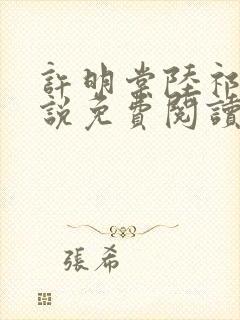 許明棠陸祁
說免費閱讀
張希